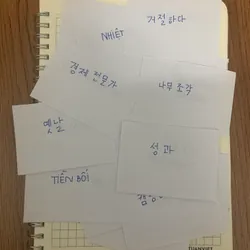 거절하다
NHIỆT
경제 전문가
나무 조각
옛날
성과
TIỀN BỐI